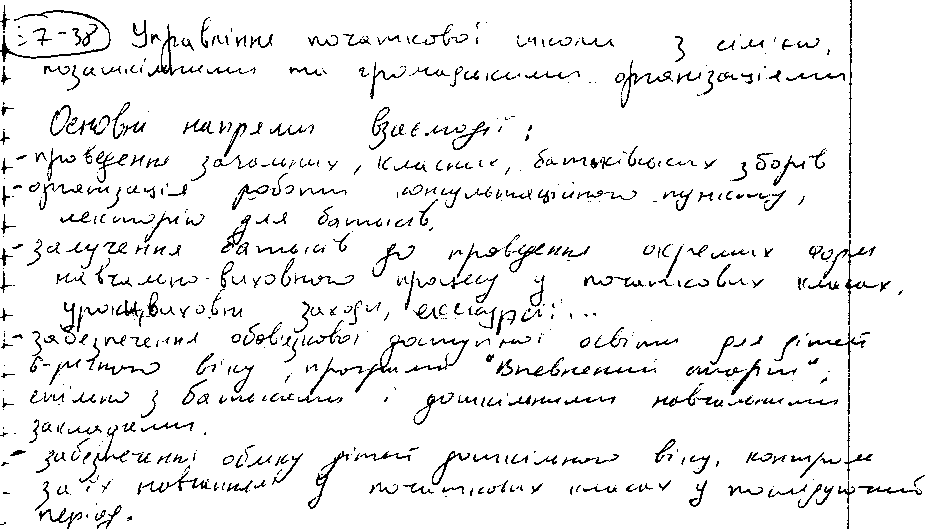 37-38 Управління початкової школи з сім'єю,
позашкільними та громадськими організаціями
Основні напрями взаємодії:
- проведення загальних, класних, батьківських зборів
- організація роботи консультаційного пункту,
лекторію для батьків.
- залучення батьків до проведення окремих форм
навчально-виховного процесу у початкових класах,
уроки, виховні заходи, екскурсії...
- забезпечення обов'язкової доступної освіти для дітей
6-річного віку, програми "Впевнений старт",
спільно з батьками і дошкільними навчальними
закладами.
- забезпеченні обліку дітей дошкільного віку, контроль
за їх навчанням у початкових класах у послідуючий
період.